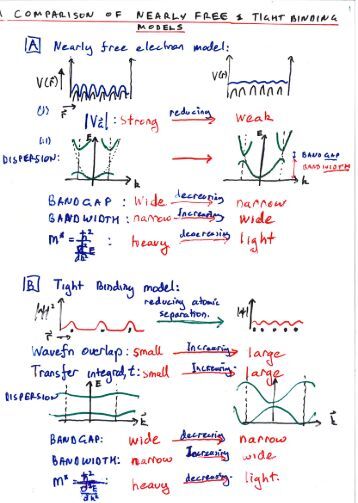 A COMPARISON OF NEARLY FREE & TIGHT BINDING
MODELS
A Nearly free electron model:
V(r) V(r)
r
(i) |VG| : Strong reducing weak
(ii) E E
DISPERSION: k k BAND GAP
BANDWIDTH
BANDGAP: Wide decreasing narrow
BANDWIDTH: narrow Increasing wide
m* = ħ² / d²E/dk² : heavy decreasing light
B Tight Binding model:
|ψ|² reducing atomic |ψ|
separation.
r
Wavefn overlap: small Increasing large
Transfer integral, t: small Increasing large
DISPERSION E k k
BANDGAP: wide decrecing narrow
BANDWIDTH: narrow Increasing wide
m* = ħ² / d²E/dk² : heavy decreasing light.